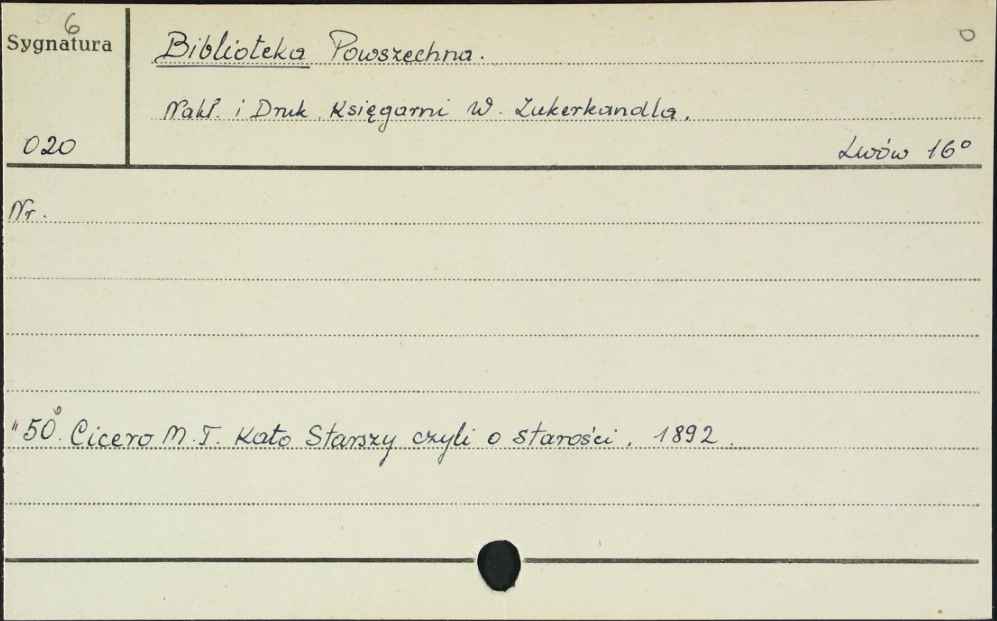 6 0
Sygnatura Biblioteka Powszechna.
Nakł. i Druk. Księgarni W. Zukerkandla.
020 Lwów 16°
Nr.
"50. Cicero M. T. Kato Starszy czyli o starości. 1892.